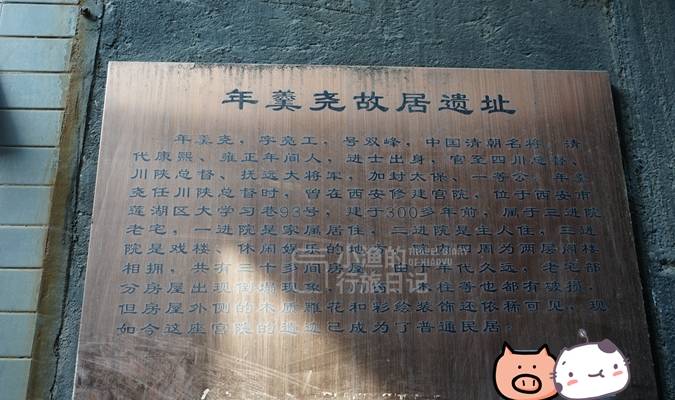 年羹尧故居遗址
年羹尧，字亮工，号双峰，中国清朝名将。清
代康熙、雍正年间人，进士出身，官至四川总督、
川陕总督、抚远大将军，加封太保、一等公。年羹
尧任川陕总督时，曾在西安修建宫院，位于西安市
莲湖区大学习巷93号，建于300多年前，属于三进院
老宅，一进院是家属居住，二进院是主人住，三进
院是戏楼、休闲娱乐的地方，院内四周为两层阁楼
相拥，共有三十多间房屋。由于年代久远，老宅部
分房屋出现倒塌现象，木柱等也都有破损，
但房屋外侧的木质雕花和彩绘装饰还依稀可见，现
如今这座宫院的遗迹已成为了普通民居。
小渔的
行旅日记
TRAVEL DIARY
OF XIAOYU